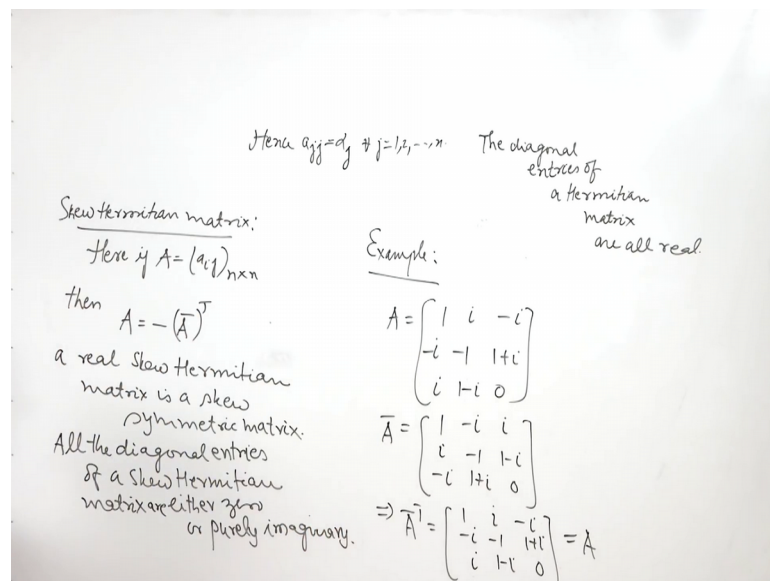 Hence ajj = αj ∀ j=1,2,--,n.
The diagonal
entries of
a Hermitian
matrix
are all real.
Skew Hermitian matrix:
Here if A = (aij)n×n
then
A = -(A̅)ᵀ
a real Skew Hermitian
matrix is a skew
symmetric matrix.
All the diagonal entries
of a Skew Hermitian
matrix are either zero
or purely imaginary.
Example:
A = [1 i -i
-i -1 1+i
i 1-i 0]
A̅ = [1 -i i
i -1 1-i
-i 1+i 0]
⇒ A̅ᵀ = [1 i -i
-i -1 1+i
i 1-i 0] = A